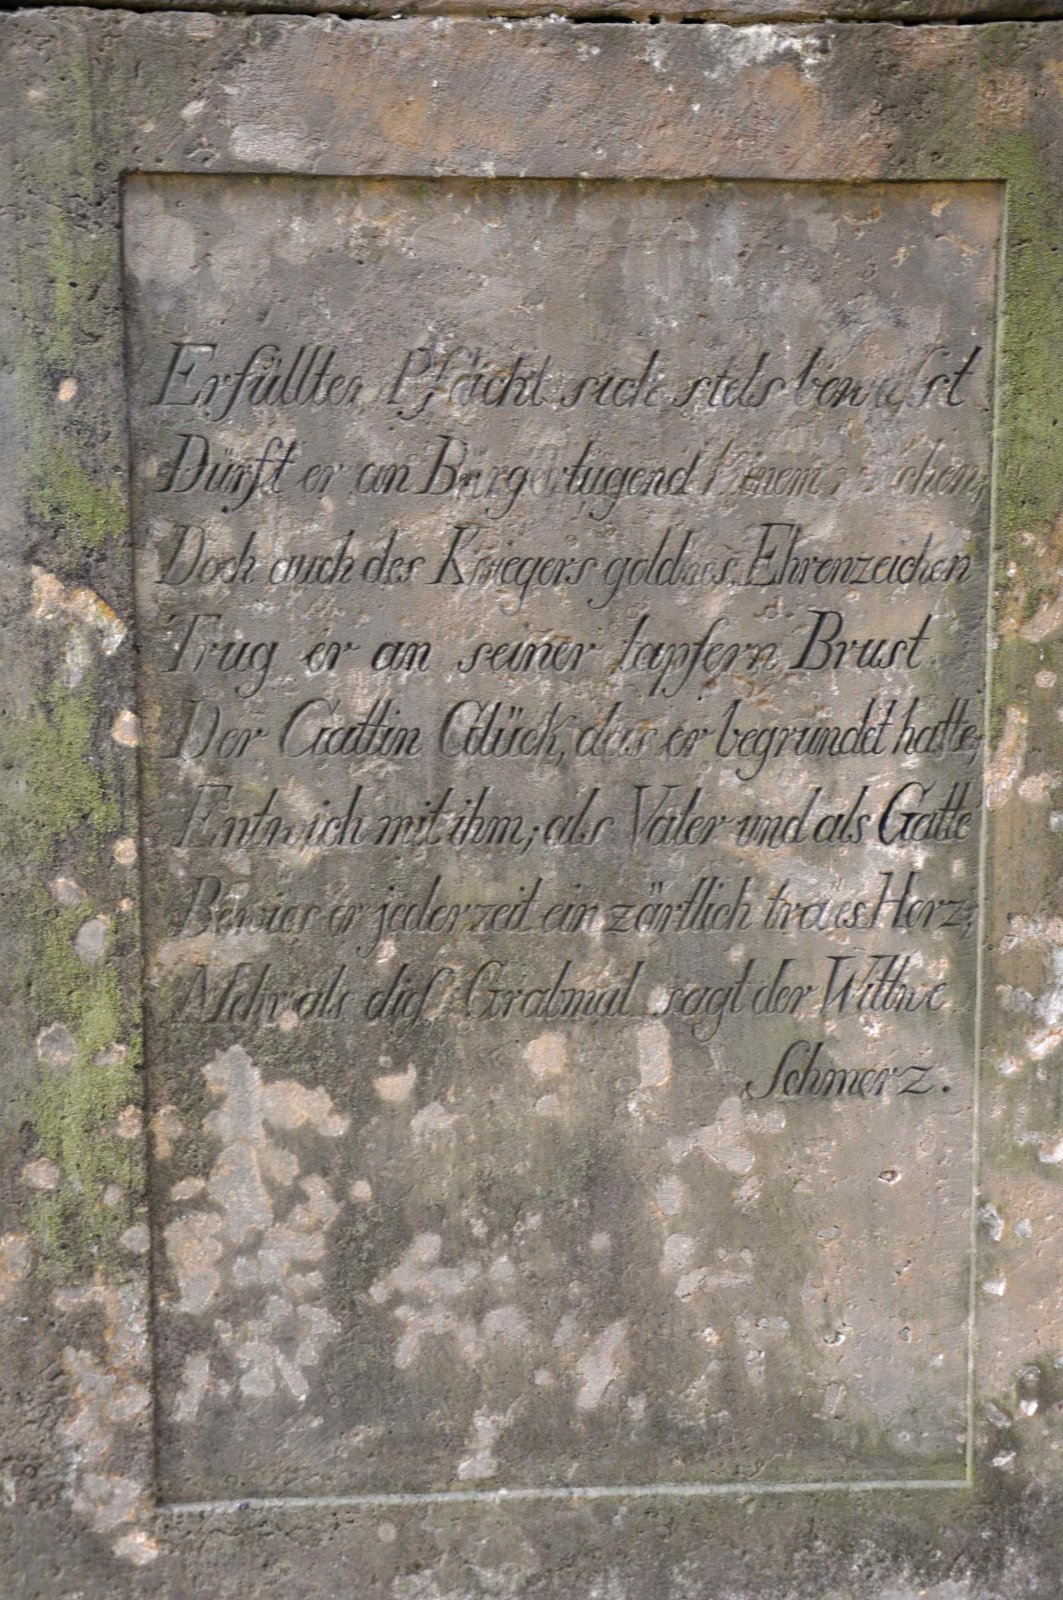 Erfüllter Pflicht sich stets bewußt
Dürft er an Bürgertugend Keinem weichen,
Doch auch des Kriegers goldnes Ehrenzeichen
Trug er an seiner tapfern Brust
Der Gattin Glück, das er begründet hatte,
Entwich mit ihm; als Vater und als Gatte
Bewies er jederzeit ein zärtlich treües Herz;
Mehr als dieß Grabmal sagt der Wittwe
Schmerz.